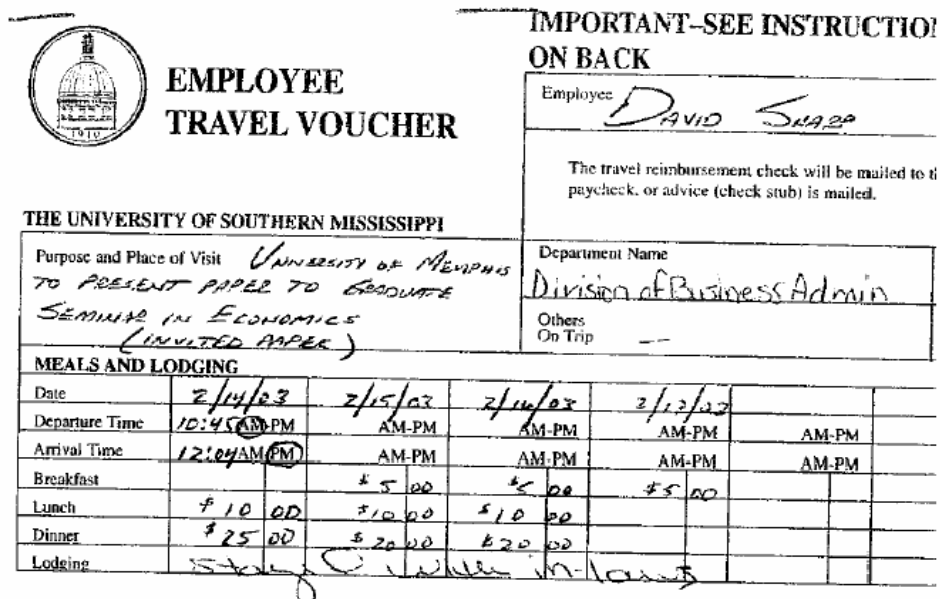 IMPORTANT–SEE INSTRUCTION
ON BACK
EMPLOYEE
TRAVEL VOUCHER
1910
Employee DAVID
The travel reimbursement check will be mailed to th
paycheck, or advice (check stub) is mailed.
THE UNIVERSITY OF SOUTHERN MISSISSIPPI
Purpose and Place of Visit UNIVERSITY OF MEMPHIS
TO PRESENT PAPER TO GRADUATE
SEMINAR IN ECONOMICS
(INVITED PAPER)
Department Name
Division of Business Admin
Others
On Trip —
MEALS AND LODGING
Date 2/14/03 2/15/03 2/16/03 2/17/03
Departure Time 10:45 AM-PM AM-PM AM-PM AM-PM AM-PM
Arrival Time 12:04 AM-PM AM-PM AM-PM AM-PM AM-PM
Breakfast $5 00 $5 00 $5 00
Lunch $10 00 $10 00 $10 00
Dinner $25 00 $20 00 $20 00
Lodging in-laws